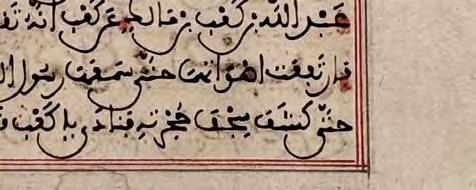 عبد الله بن كعب بن مالك عن كعب انه تقا
فارتفعت اصواتهما حتى سمعها رسول ال
حتى كشف سجف حجرته فنادى يا كعب ق